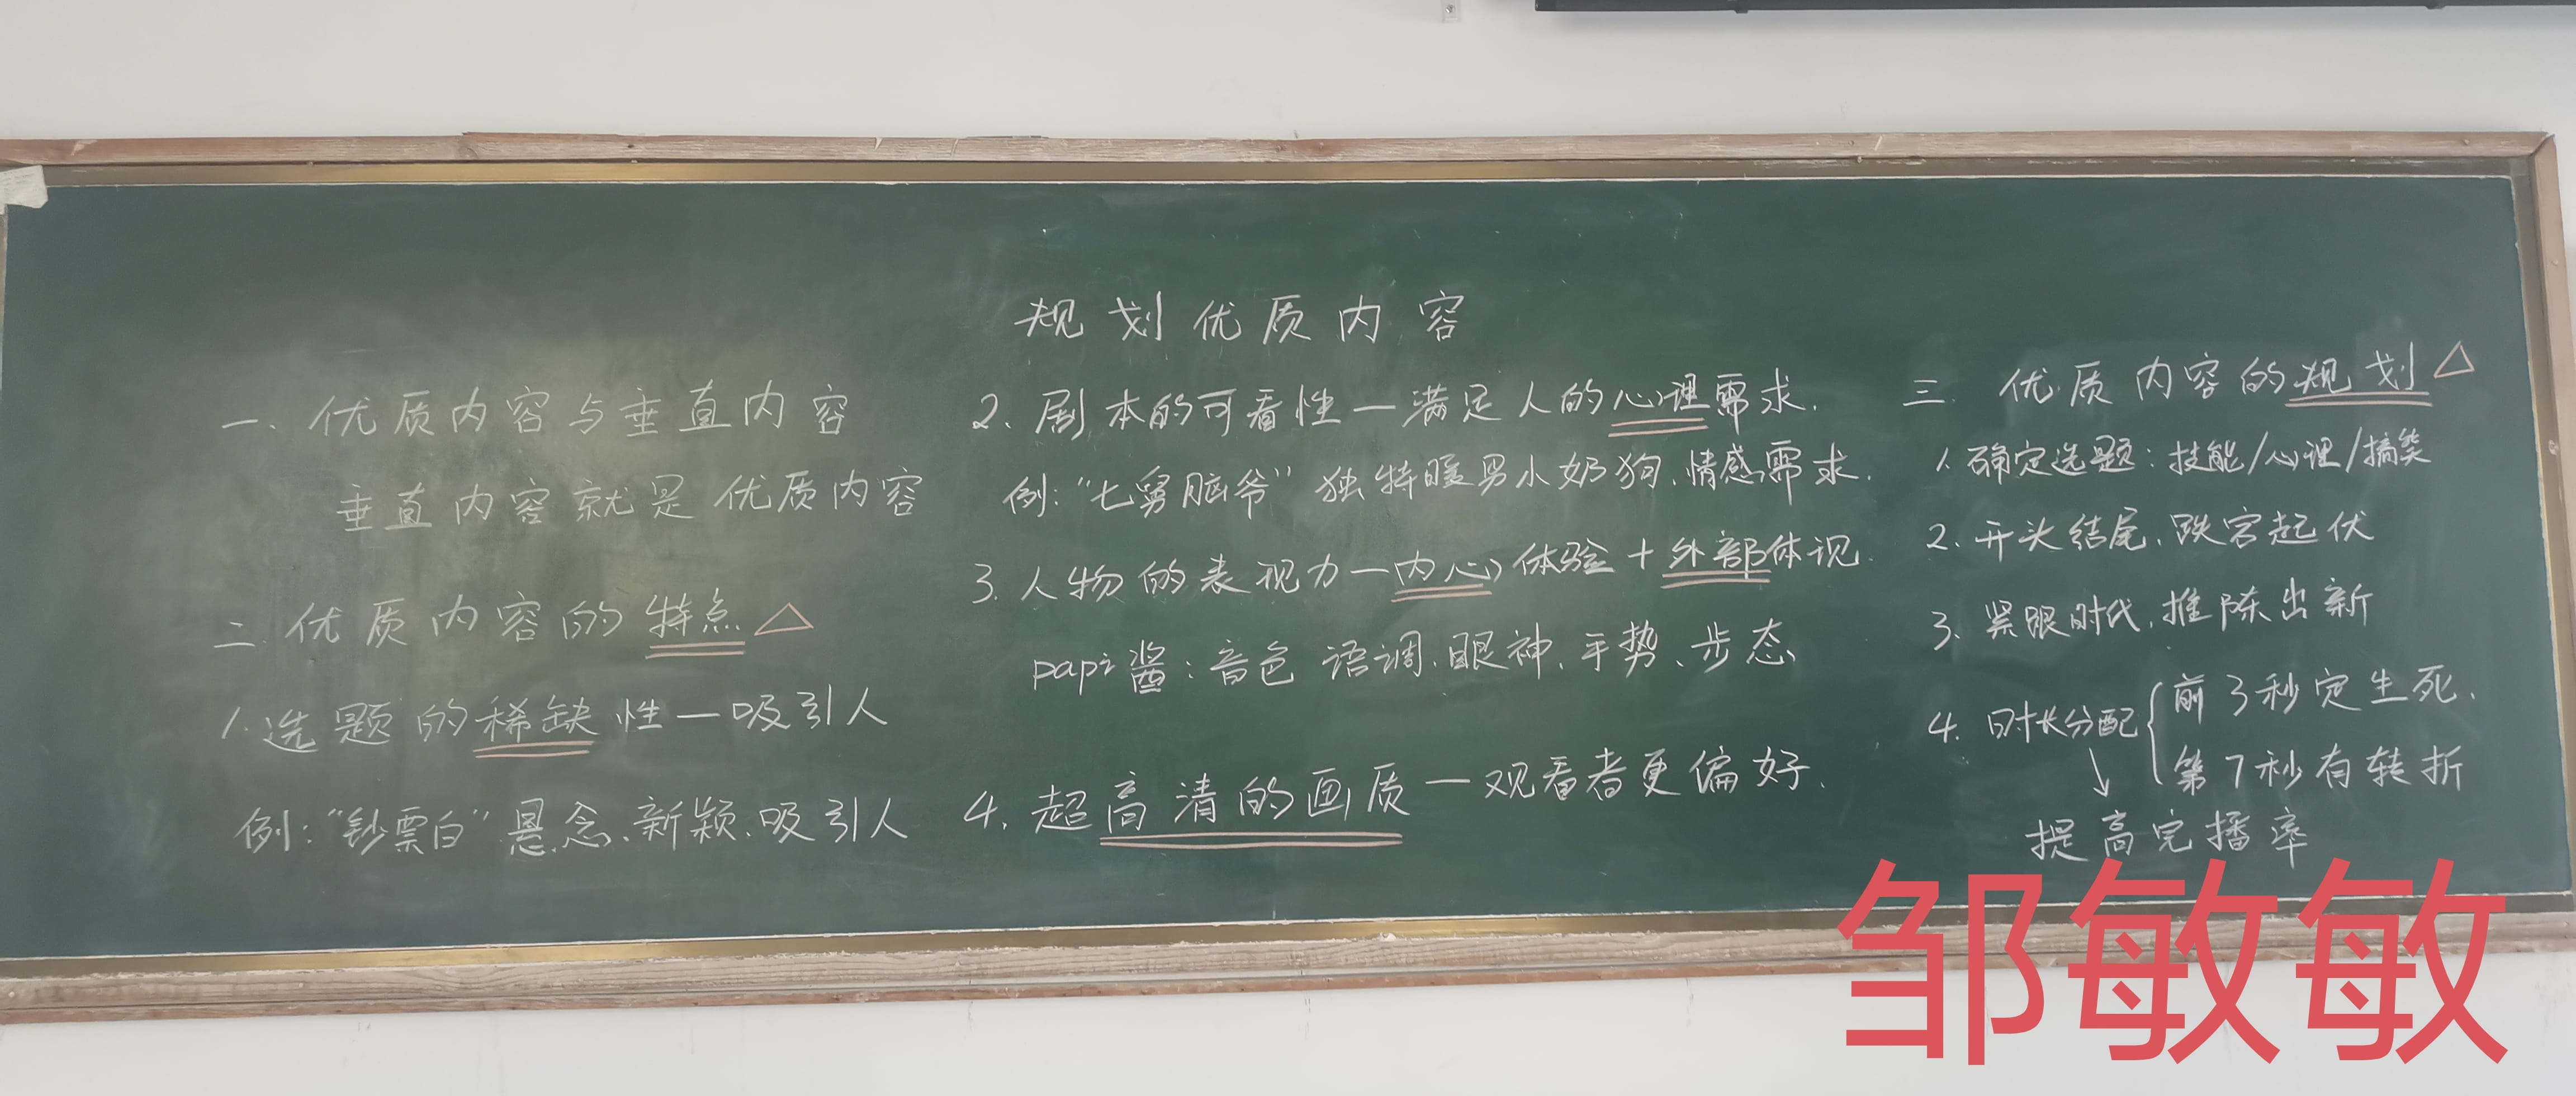 规划优质内容
一、优质内容与垂直内容
垂直内容就是优质内容
二、优质内容的特点△
1、选题的稀缺性—吸引人
例：“钞票白”悬念、新颖、吸引人
2、剧本的可看性—满足人的心理需求.
例：“七舅脑爷” 独特暖男小奶狗、情感需求.
3、人物的表现力—内心体验+外部体现
papi酱：音色 语调、眼神、手势、步态
4、超高清的画质—观看者更偏好.
三、优质内容的规划△
1、确定选题：技能/心理/搞笑
2、开头结尾、跌宕起伏
3、紧跟时代、推陈出新
4、时长分配{前3秒定生死、
第7秒有转折
↓
提高完播率
邹敏敏